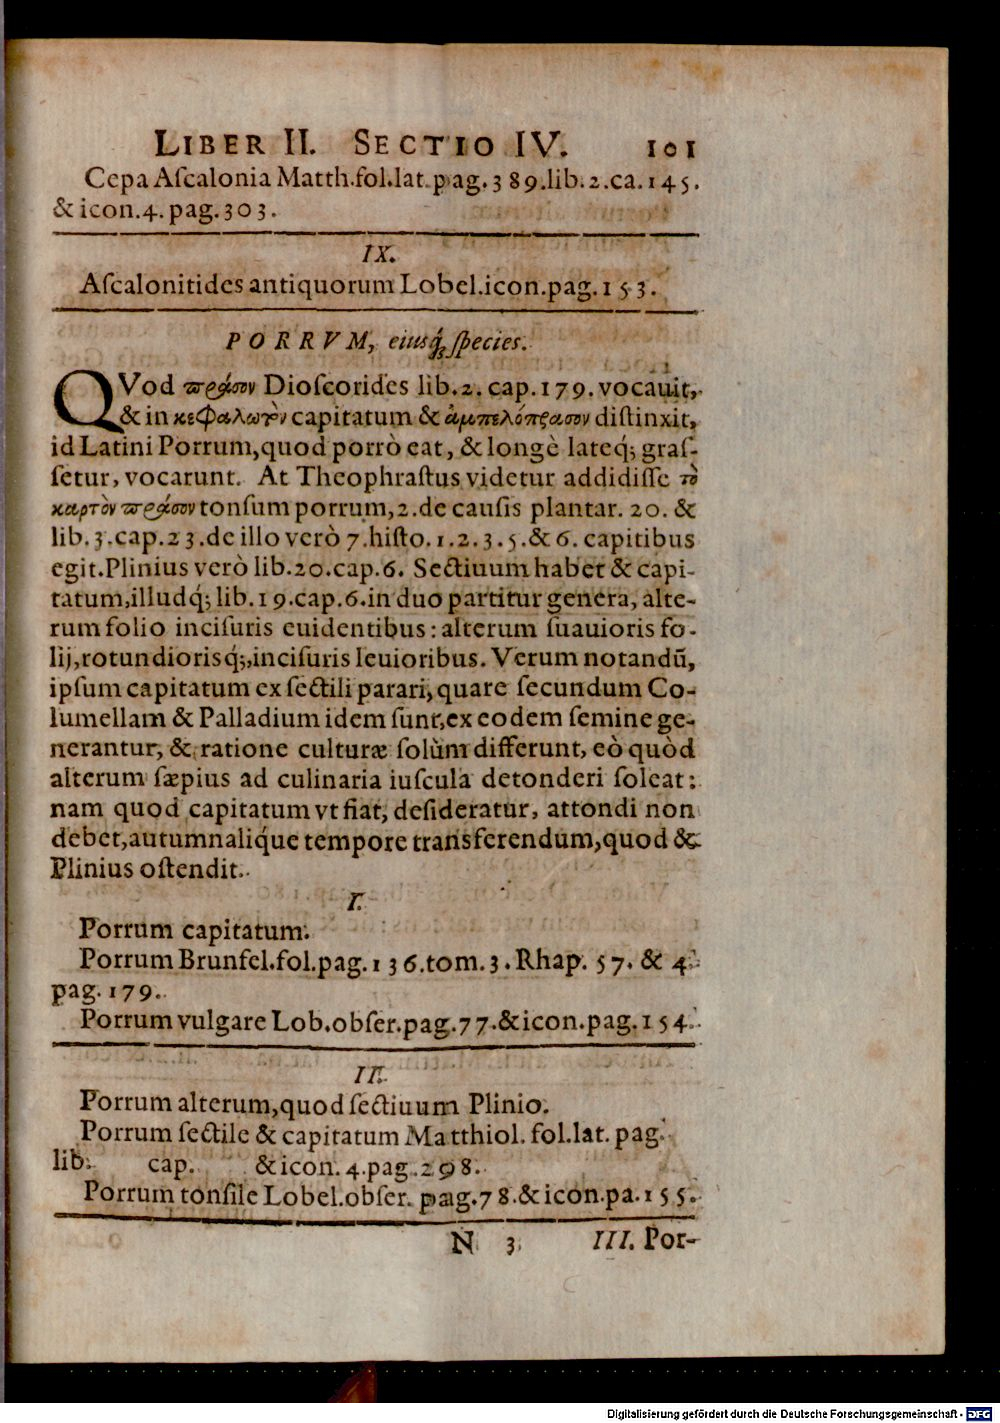 LIBER II. SECTIO IV. 101
Cepa Aſcalonia Matth.fol.lat.pag.389.lib.2.ca.145.
& icon.4.pag.303.
IX.
Aſcalonitides antiquorum Lobel.icon.pag.153.
PORRVM, eiusq́; ſpecies.
QVod πράσον Dioſcorides lib.2.cap.179.vocauit,
& in κεφαλωτὸν capitatum & ἀμπελόπρασον diſtinxit,
id Latini Porrum,quod porrò eat, & longè lateq́; graſ-
ſetur, vocarunt. At Theophraſtus videtur addidiſſe τὸ
καρτὸν πράσον tonſum porrum,2.de cauſis plantar. 20. &
lib.3.cap.23.de illo verò 7.hiſto.1.2.3.5.& 6. capitibus
egit.Plinius verò lib.20.cap.6. Sectiuum habet & capi-
tatum,illudq́; lib.19.cap.6.in duo partitur genera, alte-
rum folio inciſuris euidentibus: alterum ſuauioris fo-
lij,rotundiorisq́;,inciſuris leuioribus. Verum notandũ,
ipſum capitatum ex ſectili parari, quare ſecundum Co-
lumellam & Palladium idem ſunt,ex eodem ſemine ge-
nerantur, & ratione culturæ ſolùm differunt, eò quòd
alterum ſæpius ad culinaria iuſcula detonderi ſoleat:
nam quod capitatum vt fiat, deſideratur, attondi non
debet,autumnaliq́ue tempore transferendum,quod &
Plinius oſtendit.
I.
Porrum capitatum.
Porrum Brunfel.fol.pag.136.tom.3.Rhap. 57. & 4
pag.179.
Porrum vulgare Lob.obſer.pag.77.&icon.pag.154.
II.
Porrum alterum,quod ſectiuum Plinio.
Porrum ſectile & capitatum Matthiol. fol.lat. pag.
lib. cap. &icon.4.pag.298.
Porrum tonſile Lobel.obſer. pag.78.&icon.pa.155.
N 3 III. Por-
Digitalisierung gefördert durch die Deutsche Forschungsgemeinschaft - DFG